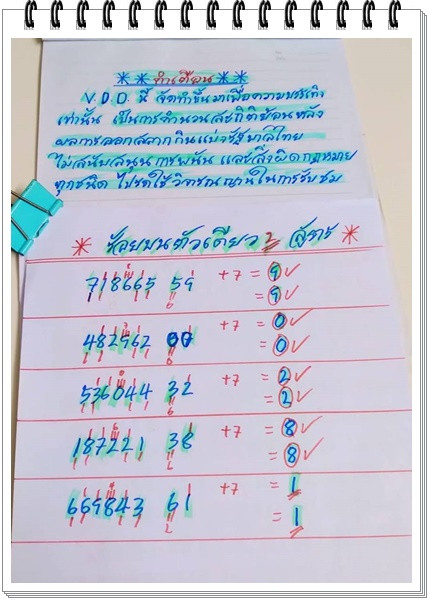 ** คำเตือน **
V.D.O. นี้ จัดทำขึ้นมาเพื่อความบันเทิง
เท่านั้น เป็นการคำนวนสถิติย้อนหลัง
ผลการออกสลากกินแบ่งรัฐบาลไทย
ไม่สนับสนุนการพนัน และสิ่งผิดกฎหมาย
ทุกชนิด โปรดใช้วิจารณญานในการรับชม
* ร้อยบนตัวเดียว 2 สูตร *
718665 59 +7 = 9 ✓
= 9 ✓
482962 07 +7 = 0 ✓
= 0 ✓
536044 32 +7 = 2 ✓
= 2 ✓
187221 38 +7 = 8 ✓
= 8 ✓
669843 61 +7 = 1
= 1